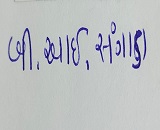 બી. આઈ. સંગાડા